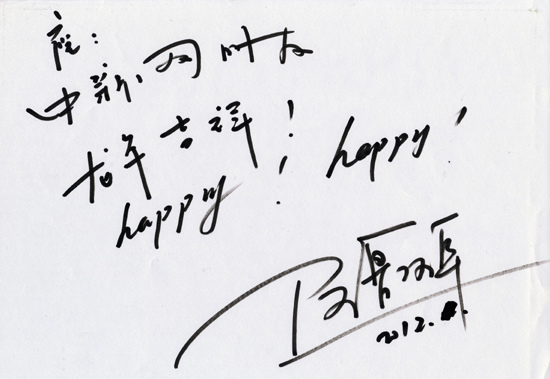 祝：
中新网网友
龙年吉祥！
happy！ happy！
2012.